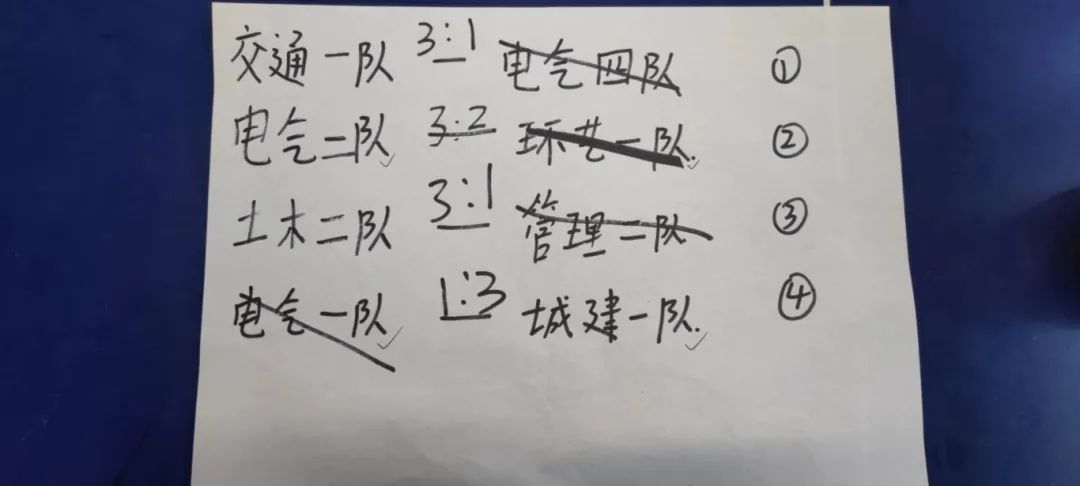 交通一队 3:1 电气四队 ①
电气二队 3:2 环艺一队. ②
土木二队 3:1 管理二队 ③
电气一队 1:3 城建一队. ④